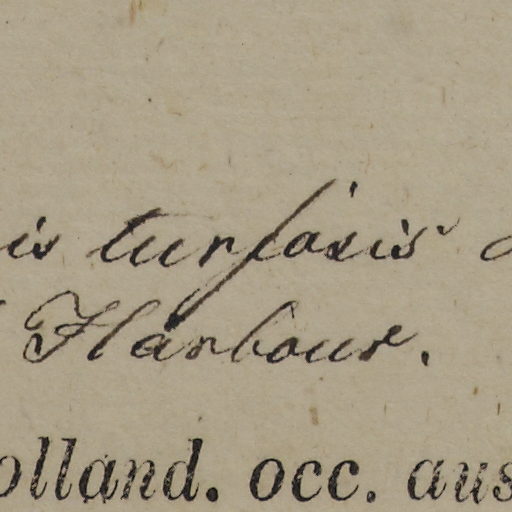 is turfosis
Harbour.
olland. occ. aus